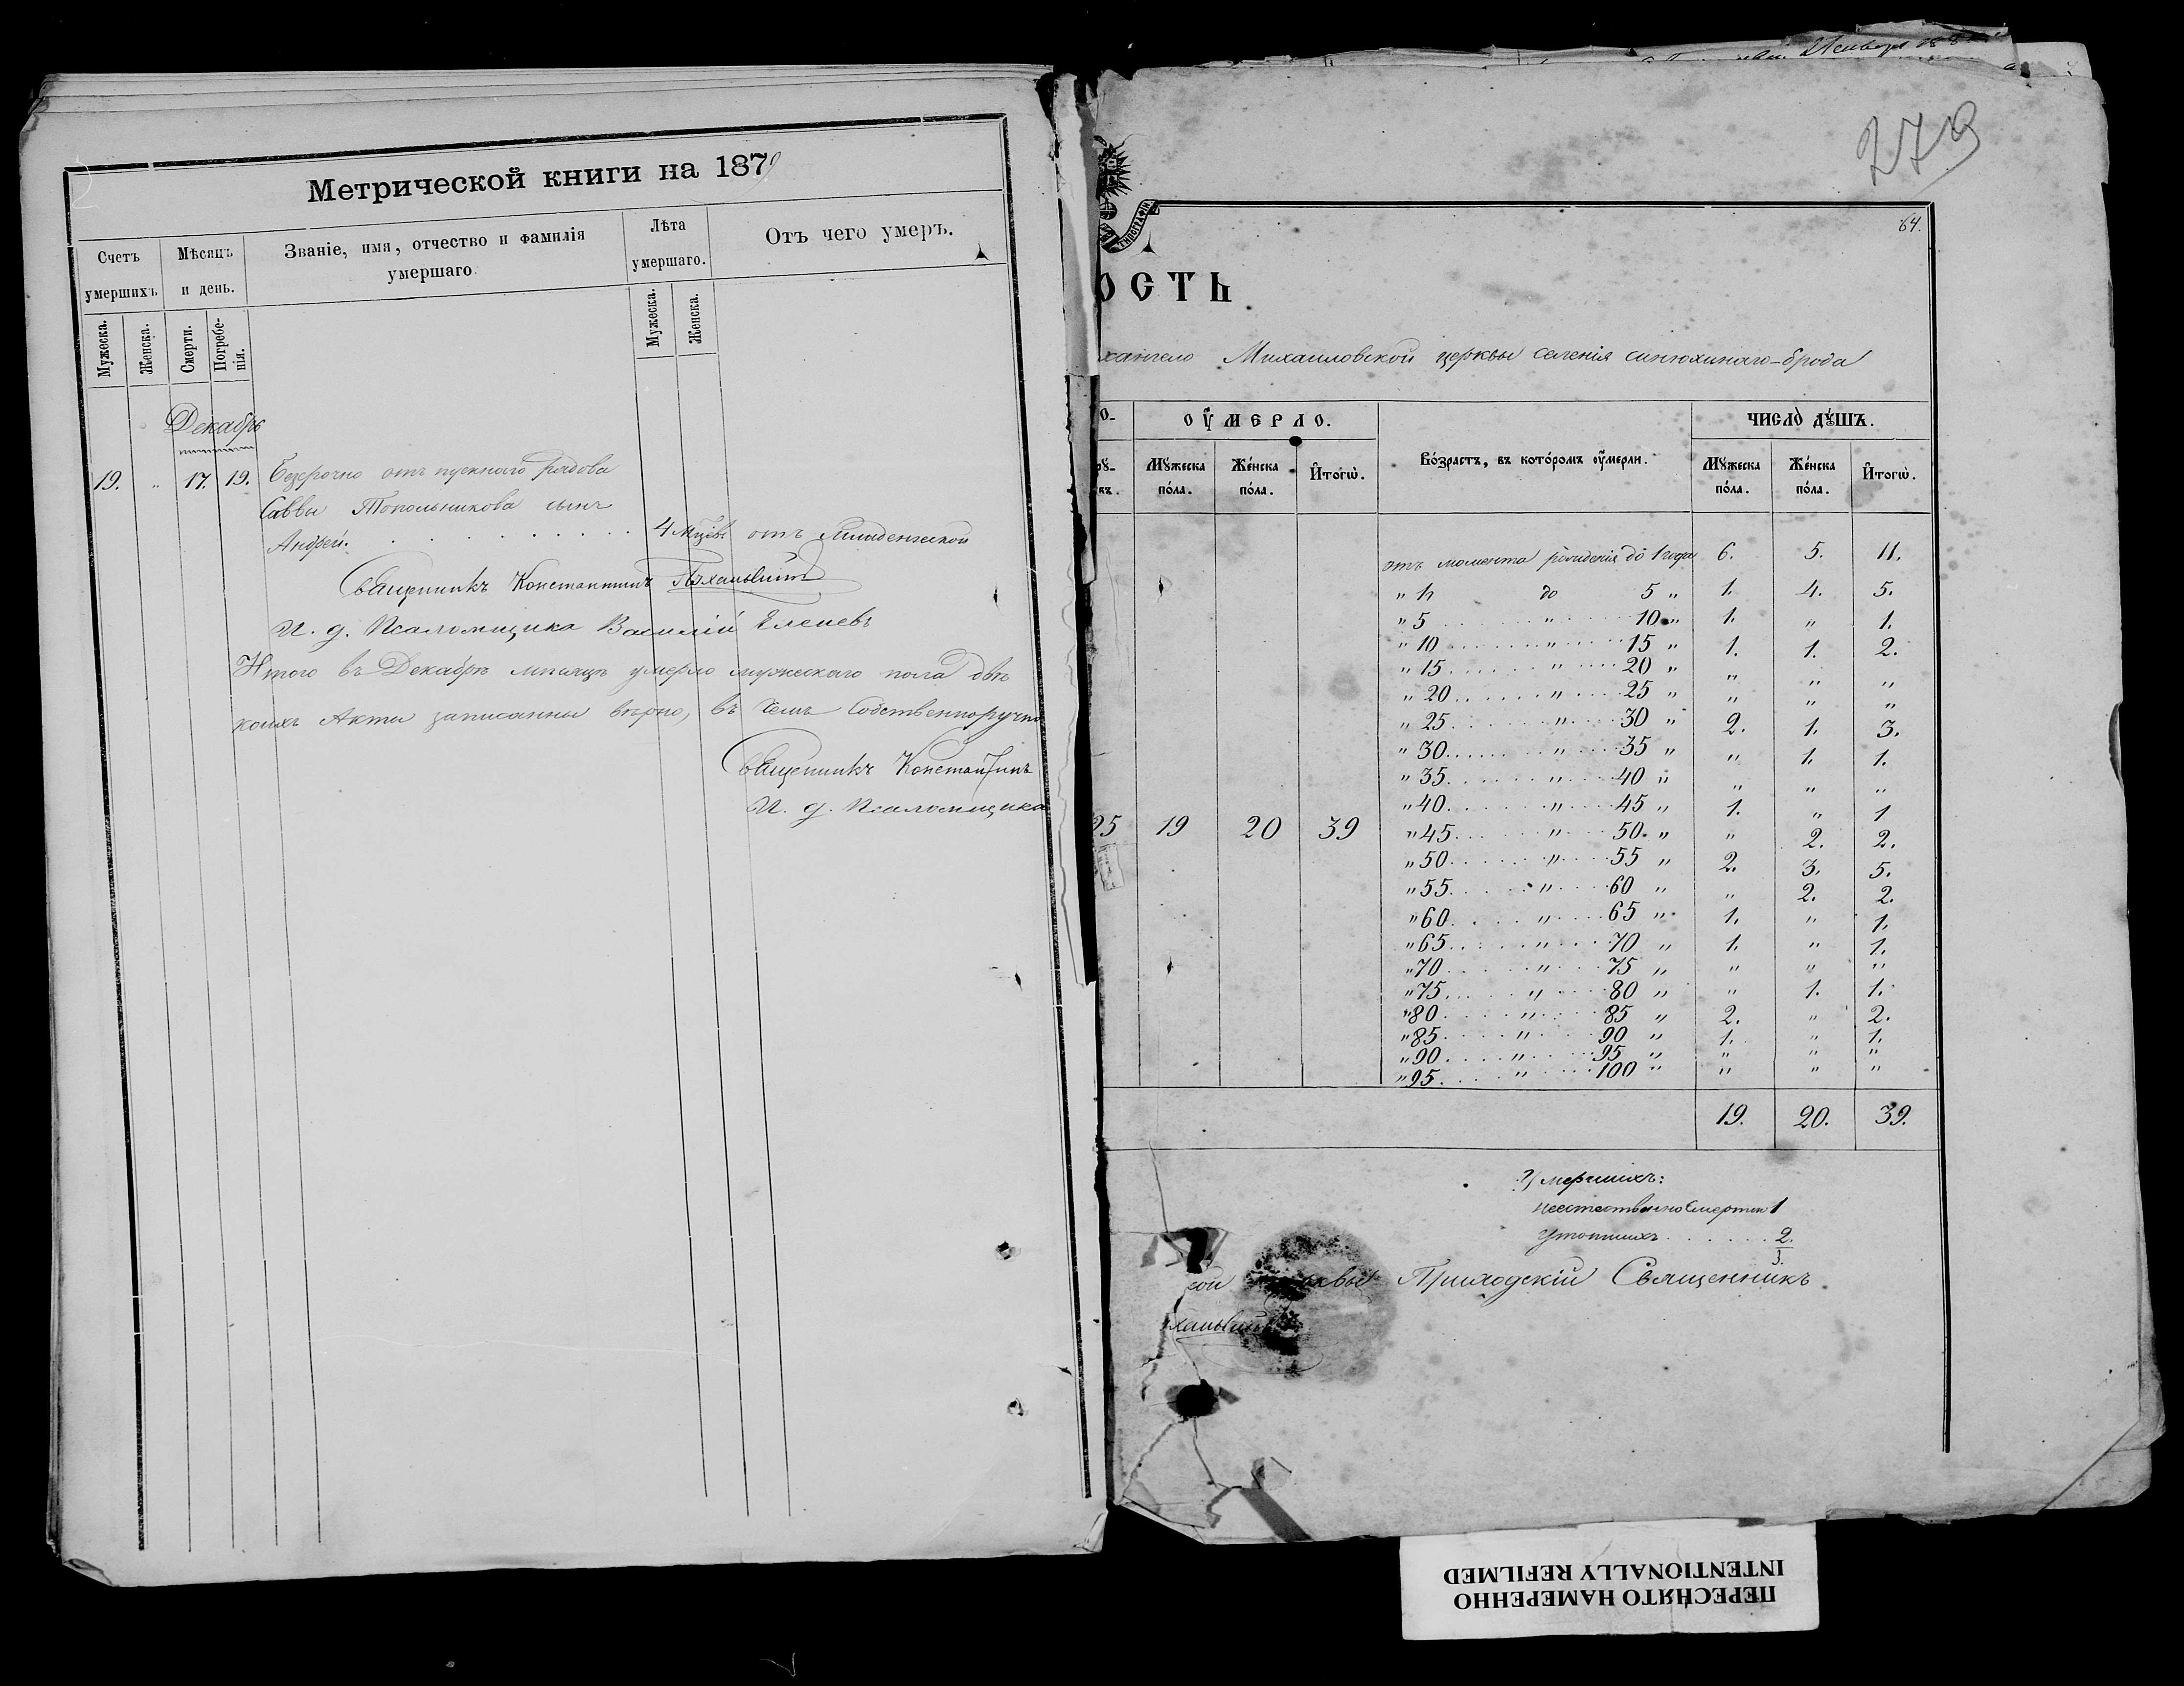 Метрической книги на 1879
Счетъ умершихъ
Мѣсяцъ и день.
Званіе, имя, отчество и фамилія умершаго
Лѣта умершаго.
Отъ чего умеръ.
Мужеска.
Женска.
Смерти.
Погребе-
нія.
Мужеска.
Женска.
Декабрь
19. „ 17. 19. Безсрочно отпускного рядова
Саввы Топольникова сынъ
Андрей. . . . . . . . . 4 мцвъ отъ младенческой
Священникъ Константинъ
И. д. Псаломщика Василій Еленевъ
Итого въ Декабрѣ мѣсяцѣ умерло мужескаго пола двѣ
коихъ Акты записанны вѣрно, въ чемъ Собственноручно
Священникъ Константинъ
И. д. Псаломщика
279
64.
ОСТЬ
хангело Михаиловской церквы селенія синюхинаго-брода
Оумерло.
Возрастъ, въ которомъ оумерли.
Число душъ.
Мужеска пола.
Женска пола.
Итогѡ.
Мужеска пола.
Женска пола.
Итогѡ.
отъ момента рожденія до 1 года 6. 5. 11.
„ 1 до 5 „ 1. 4. 5.
„ 5 „ 10 „ 1. „ 1.
„ 10 „ 15 „ 1. 1. 2.
„ 15 „ 20 „ „ „ „
„ 20 „ 25 „ „ „ „
„ 25 „ 30 „ 2. 1. 3.
„ 30 „ 35 „ „ 1. 1.
„ 35 „ 40 „ „ „ „
„ 40 „ 45 „ 1. „ 1
25 19 20 39 „ 45 „ 50. „ „ 2. 2.
„ 50 „ 55 „ 2. 3. 5.
„ 55 „ 60 „ „ 2. 2.
„ 60 „ 65 „ 1. „ 1.
„ 65 „ 70 „ 1. „ 1.
„ 70 „ 75 „ „ „ „
„ 75 „ 80 „ „ 1. 1.
„ 80 „ 85 „ 2. „ 2.
„ 85 „ 90 „ 1. „ 1.
„ 90 „ 95 „ „ „ „
„ 95 „ 100 „ „ „ „
19. 20. 39.
Умершихъ:
неестественно смертію 1
Утопшихъ . . . . . . 2.
3.
Приходскій Священникъ
ПЕРЕСНЯТО НАМЕРЕННО
INTENTIONALLY REFILMED